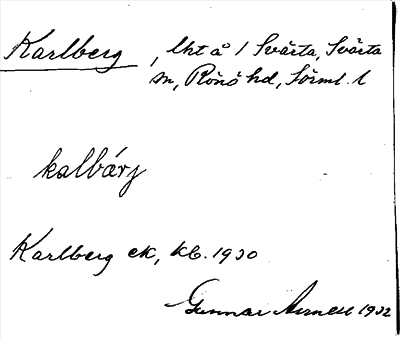 Karlberg, lht å 1 Svärta, Svärta
sn, Rönö hd, Sörml. l
kalbárj
Karlberg ek, kb. 1930
Gunnar Arnell 1932